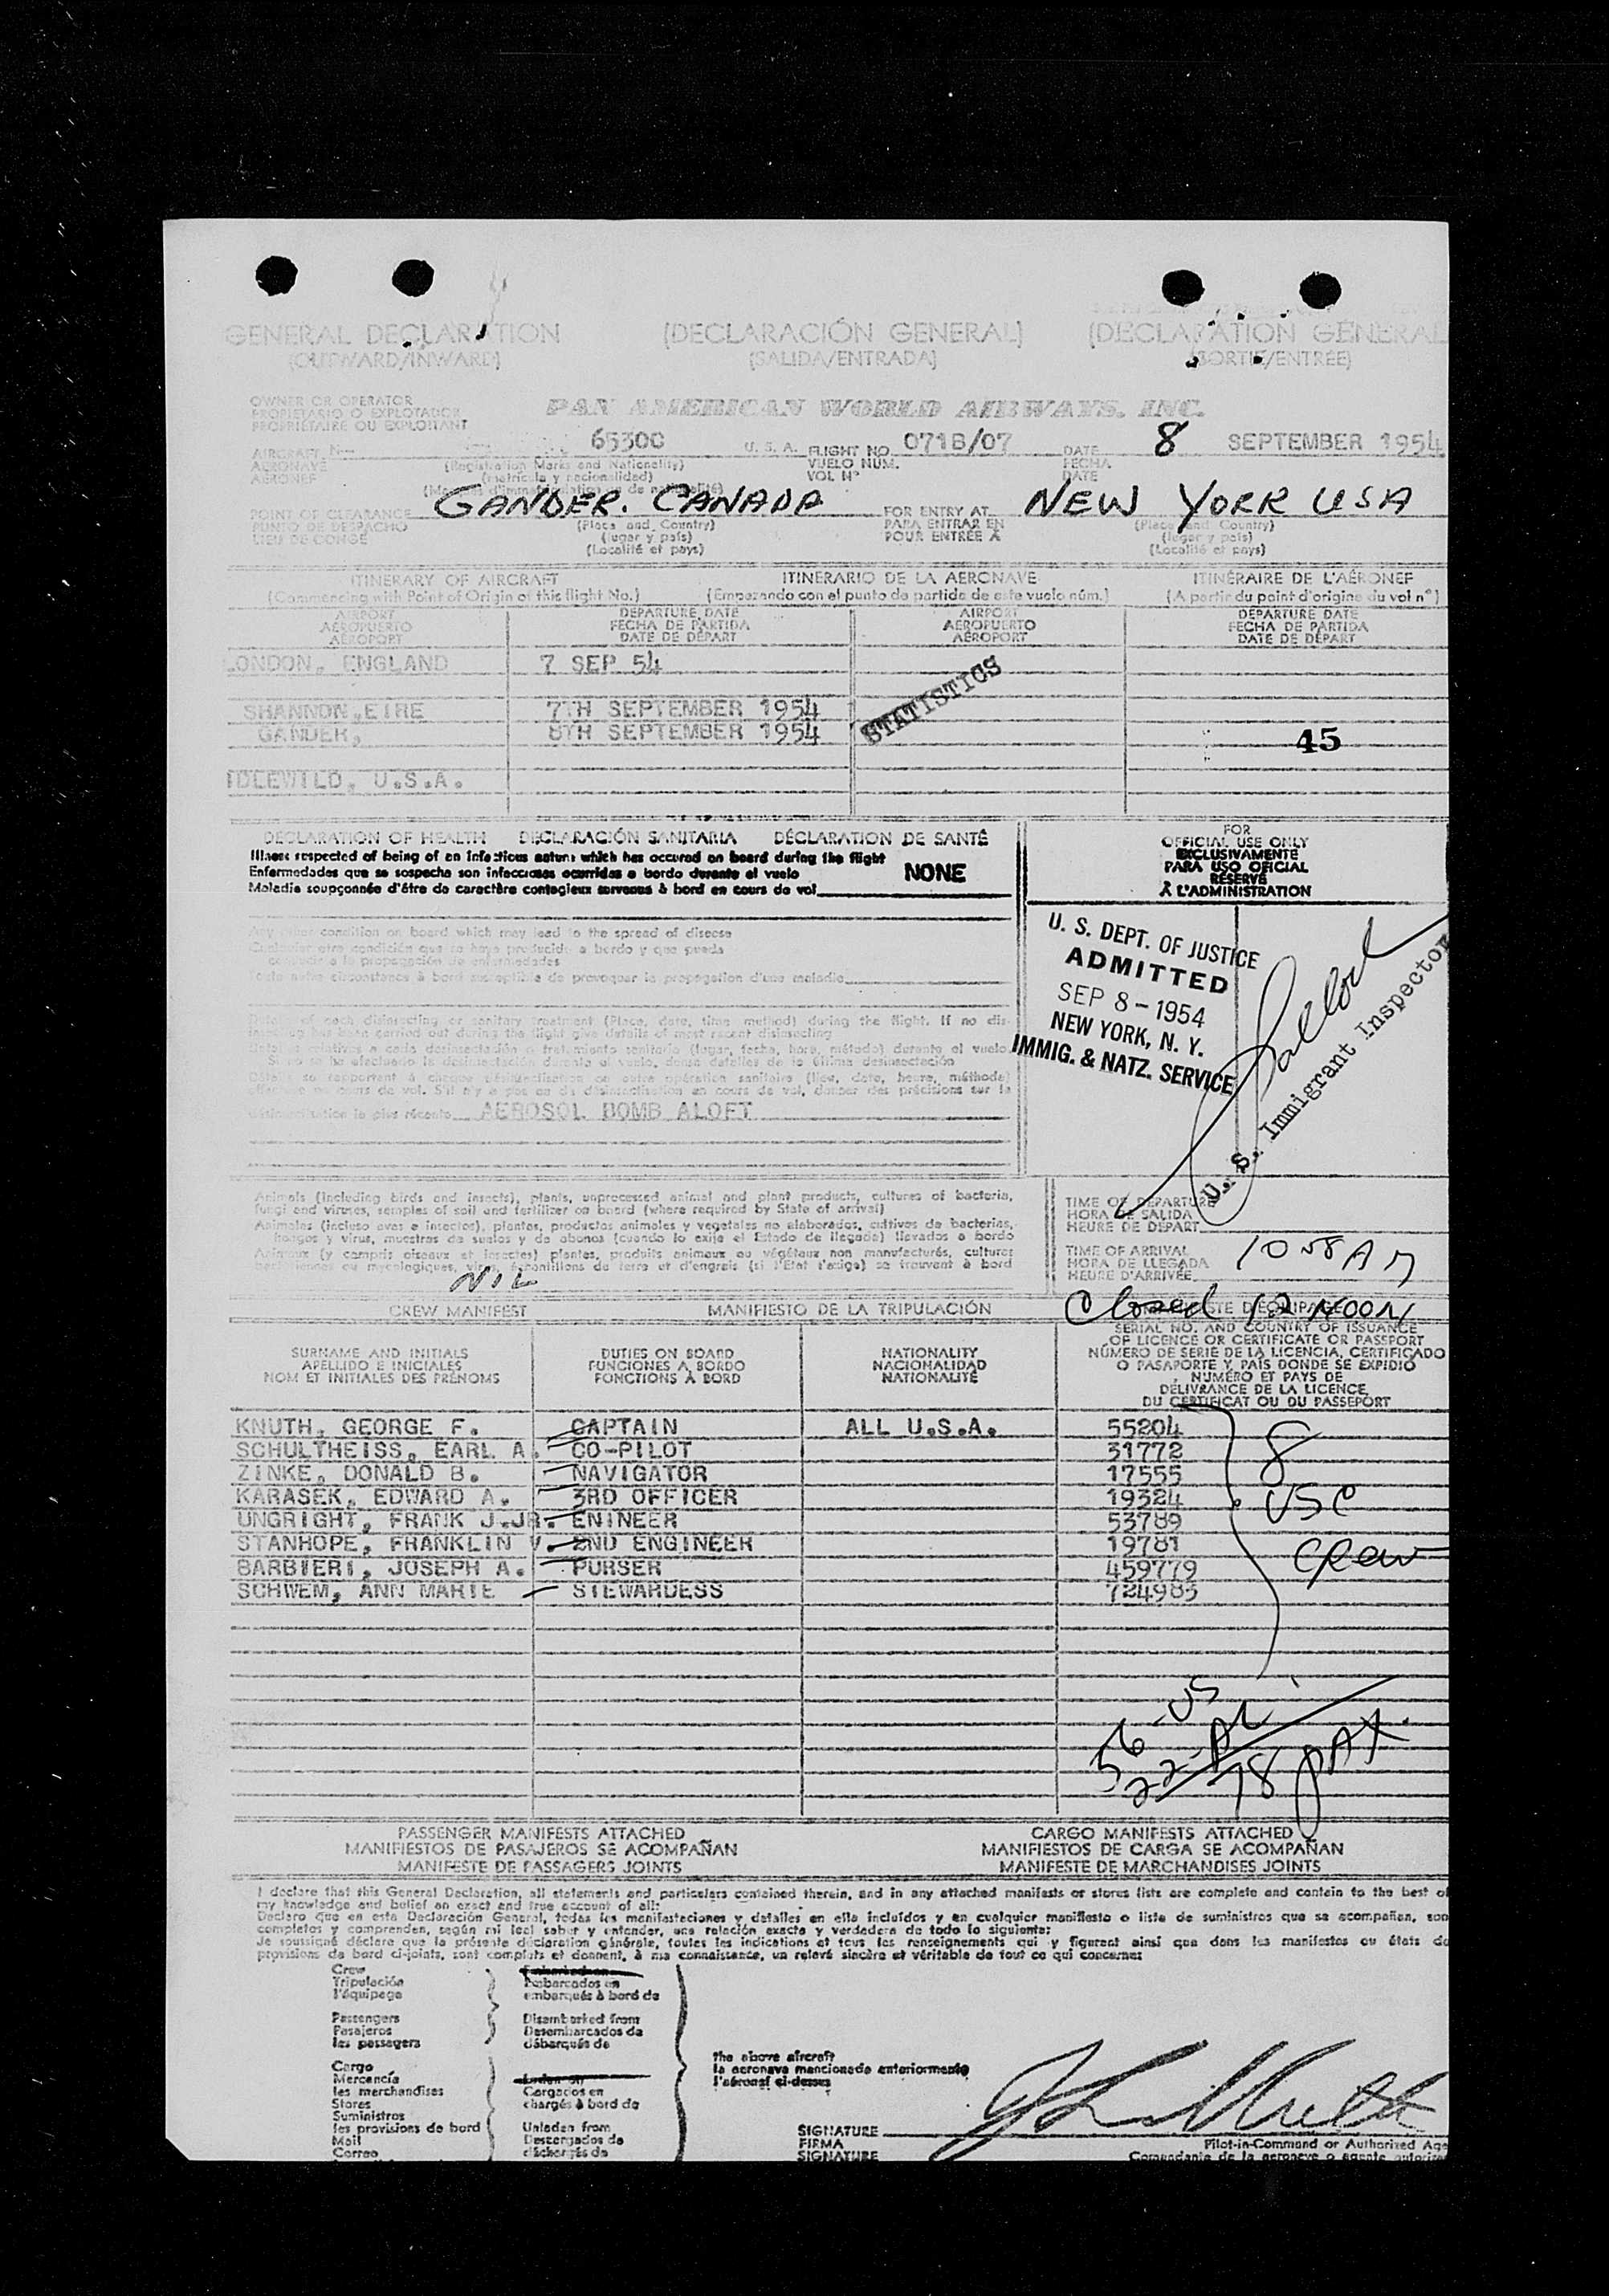 GENERAL DECLARATION (DECLARACIÓN GENERAL) (DECLARATION GÉNÉRAL
(OUTWARD/INWARD) (SALIDA/ENTRADA) (SORTIE/ENTRÉE)
OWNER OR OPERATOR
PROPIETARIO O EXPLOTADOR
PROPRIÉTAIRE OU EXPLOITANT
PAN AMERICAN WORLD AIRWAYS, INC.
AIRCRAFT N 6530C U. S. A. FLIGHT NO. 071B/07 DATE 8 SEPTEMBER 1954
AERONAVE (Registration Marks and Nationality) VUELO NUM. FECHA
AÉRONEF (matrícula y nacionalidad) VOL Nº DATE
POINT OF CLEARANCE GANDER. CANADA FOR ENTRY AT NEW YORK USA
PUNTO DE DESPACHO (Place and Country) PARA ENTRAR EN (Place and Country)
LIEU DE CONGÉ (lugar y país) POUR ENTRÉE À (lugar y país)
(Localité et pays) (Localité et pays)
ITINERARY OF AIRCRAFT ITINERARIO DE LA AERONAVE ITINÉRAIRE DE L'AÉRONEF
(Commencing with Point of Origin of this flight No.) (Empezando con el punto de partida de este vuelo núm.) (A partir du point d'origine du vol nº)
AIRPORT DEPARTURE DATE AIRPORT DEPARTURE DATE
AEROPUERTO FECHA DE PARTIDA AEROPUERTO FECHA DE PARTIDA
AÉROPORT DATE DE DÉPART AÉROPORT DATE DE DÉPART
LONDON, ENGLAND 7 SEP 54
STATISTICS
SHANNON, EIRE 7TH SEPTEMBER 1954
GANDER, 8TH SEPTEMBER 1954 45
IDLEWILD, U.S.A.
DECLARATION OF HEALTH DECLARACIÓN SANITARIA DÉCLARATION DE SANTÉ
Illness suspected of being of an infectious nature which has occured on board during the flight
Enfermedades que se sospecha son infecciosas ocurridas a bordo durante el vuelo NONE
Maladie soupçonnée d'être de caractère contagieux survenus à bord en cours de vol
FOR
OFFICIAL USE ONLY
EXCLUSIVAMENTE
PARA USO OFICIAL
RÉSERVÉ
À L'ADMINISTRATION
Any other condition on board which may lead to the spread of disease
Cualquier otra condición que se haya producido a bordo y que pueda
conducir a la propagación de enfermedades
Toute autre circonstance à bord susceptible de provoquer la propagation d'une maladie
U. S. DEPT. OF JUSTICE
ADMITTED
SEP 8 - 1954
NEW YORK, N. Y.
IMMIG. & NATZ. SERVICE
U. S. Immigrant Inspector
Details of each disinsecting or sanitary treatment (Place, date, time method) during the flight. If no dis-
insecting has been carried out during the flight give details of most recent disinsecting
Detalles relativos a cada desinsectación o tratamiento sanitario (lugar, fecha, hora, método) durante el vuelo
Si no se ha efectuado la desinsectación durante el vuelo, dense detalles de la última desinsectación
AEROSOL BOMB ALOFT
Animals (including birds and insects), plants, unprocessed animal and plant products, cultures of bacteria,
fungi and viruses, samples of soil and fertilizer on board (where required by State of arrival)
Animales (incluso aves e insectos), plantas, productos animales y vegetales no elaborados, cultivos de bacterias,
hongos y virus, muestras de suelos y de abonos (cuando lo exija el Estado de llegada) llevados a bordo
Animaux (y compris oiseaux et insectes) plantes, produits animaux ou végétaux non manufacturés, cultures
bactériennes ou mycologiques, virus, échantillons de terre et d'engrais (si l'Etat l'exige) se trouvent à bord
NIL
TIME OF DEPARTURE
HORA DE SALIDA
HEURE DE DÉPART
TIME OF ARRIVAL
HORA DE LLEGADA
HEURE D'ARRIVÉE
Closed 12 NOON
CREW MANIFEST MANIFIESTO DE LA TRIPULACIÓN
SERIAL NO. AND COUNTRY OF ISSUANCE
OF LICENCE OR CERTIFICATE OR PASSPORT
SURNAME AND INITIALS DUTIES ON BOARD NATIONALITY NÚMERO DE SERIE DE LA LICENCIA, CERTIFICADO
APELLIDO E INICIALES FUNCIONES A BORDO NACIONALIDAD O PASAPORTE Y PAÍS DONDE SE EXPIDIÓ
NOM ET INITIALES DES PRÉNOMS FONCTIONS À BORD NATIONALITÉ NUMÉRO ET PAYS DE
DÉLIVRANCE DE LA LICENCE,
DU CERTIFICAT OU DU PASSEPORT
KNUTH, GEORGE F. CAPTAIN ALL U.S.A. 55204
SCHULTHEISS, EARL A. CO-PILOT 31772
ZINKE, DONALD B. NAVIGATOR 17555
KARASEK, EDWARD A. 3RD OFFICER 19324
UNGRIGHT, FRANK J.JR. ENINEER 53789
STANHOPE, FRANKLIN V. 2ND ENGINEER 19781
BARBIERI, JOSEPH A. PURSER 459779
SCHWEM, ANN MARIE STEWARDESS 724983
8
USC
Crew
56-US
22-AL
78 PAX.
PASSENGER MANIFESTS ATTACHED CARGO MANIFESTS ATTACHED
MANIFIESTOS DE PASAJEROS SE ACOMPAÑAN MANIFIESTOS DE CARGA SE ACOMPAÑAN
MANIFESTE DE PASSAGERS JOINTS MANIFESTE DE MARCHANDISES JOINTS
I declare that this General Declaration, all statements and particulars contained therein, and in any attached manifests or stores lists are complete and contain to the best of
my knowledge and belief an exact and true account of all:
Declaro que en esta Declaración General, todas las manifestaciones y detalles en ella incluídos y en cualquier manifiesto o lista de suministros que se acompañan, son
completos y comprenden, según mi leal saber y entender, una relación exacta y verdadera de todo lo siguiente:
Je soussigné déclare que la présente déclaration générale, toutes les indications et tous les renseignements qui y figurent ainsi que dans les manifestes ou états de
provisions de bord ci-joints, sont complets et donnent, à ma connaissance, un relevé sincère et véritable de tout ce qui concerne:
Crew
Tripulación Embarcados en
l'équipage embarqués à bord de
Passengers Disembarked from
Pasajeros Desembarcados de
les passagers débarqués de
The above aircraft
la aeronave mencionada anteriormente
l'aéronef ci-dessus
Cargo
Mercancía
les merchandises Cargados en
Stores chargés à bord de
Suministros
les provisions de bord Unladen from
Mail Descargados de
Correo déchargés de
SIGNATURE
FIRMA Pilot-in-Command or Authorized Age
SIGNATURE Comandante de la aeronave o agente autoriza